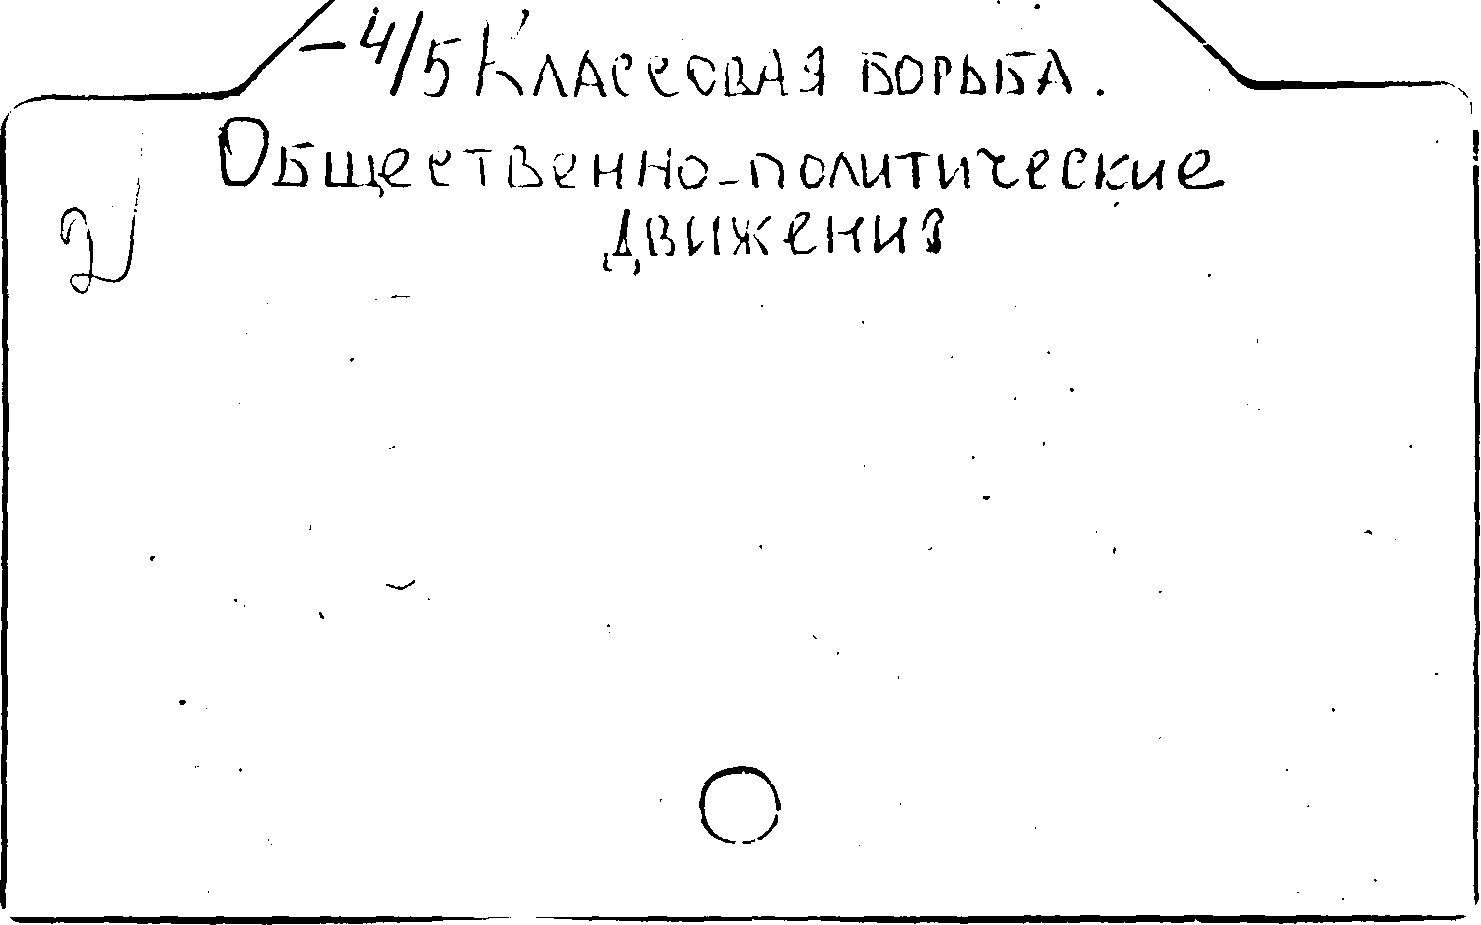 -4/5 Классовая борьба.
Общественно-политические
движения
2